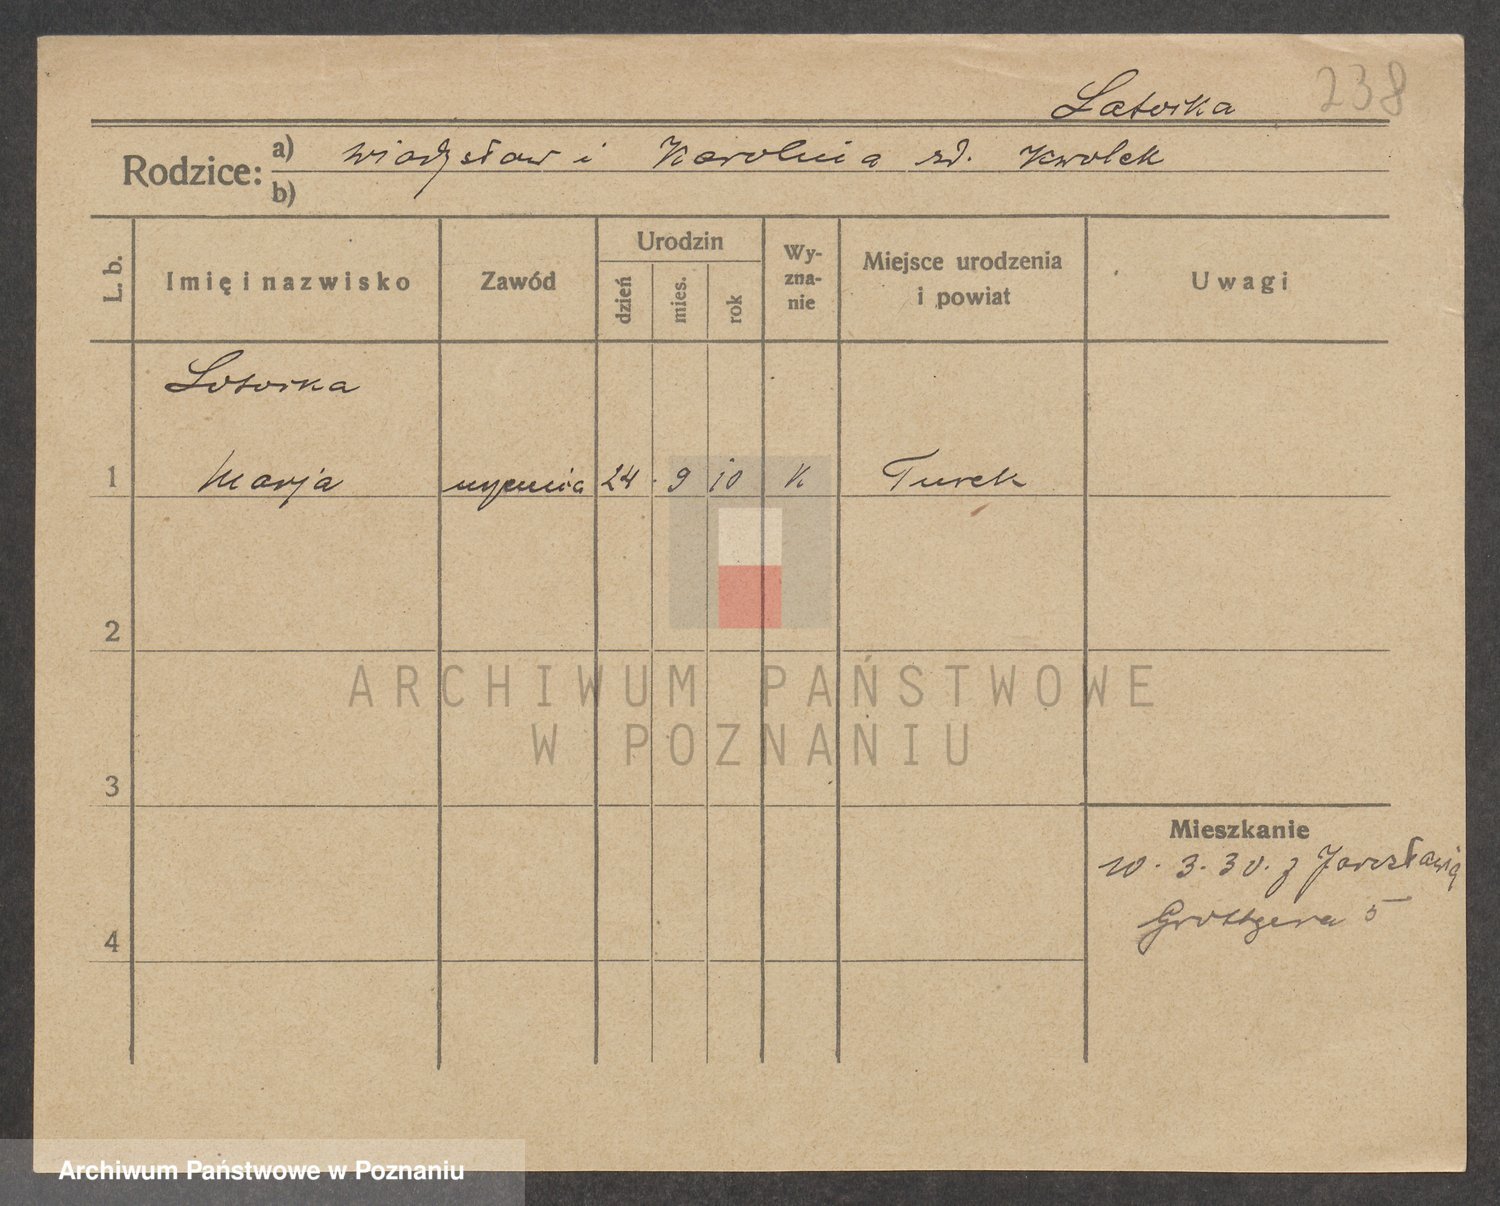 238
Latoska
Rodzice: a) Władysław i Karolnia zd. Kwolek
b)
L. b.
Imię i nazwisko
Zawód
Urodzin
dzień
mies.
rok
Wy-
zna-
nie
Miejsce urodzenia
i powiat
Uwagi
Lotoska
1 Marja 24 . 9 10 K Turek
2
3
4
Mieszkanie
10. 3. 30. z Jarosławia
Grottgera 5
ARCHIWUM PAŃSTWOWE
W POZNANIU
Archiwum Państwowe w Poznaniu